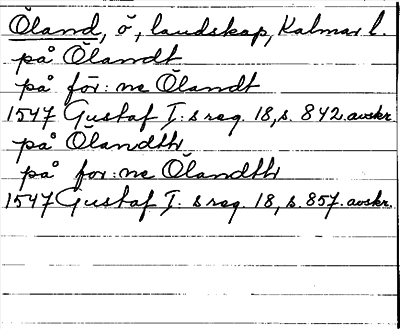 Öland, ö, landskap, Kalmar l.
på Ölandt
på för:ne Ölandt
1547 Gustaf I:s reg. 18, s. 842. avskr.
på Ölandth
på for:ne Ölandth
1547 Gustaf I: s reg. 18, s. 857. avskr.